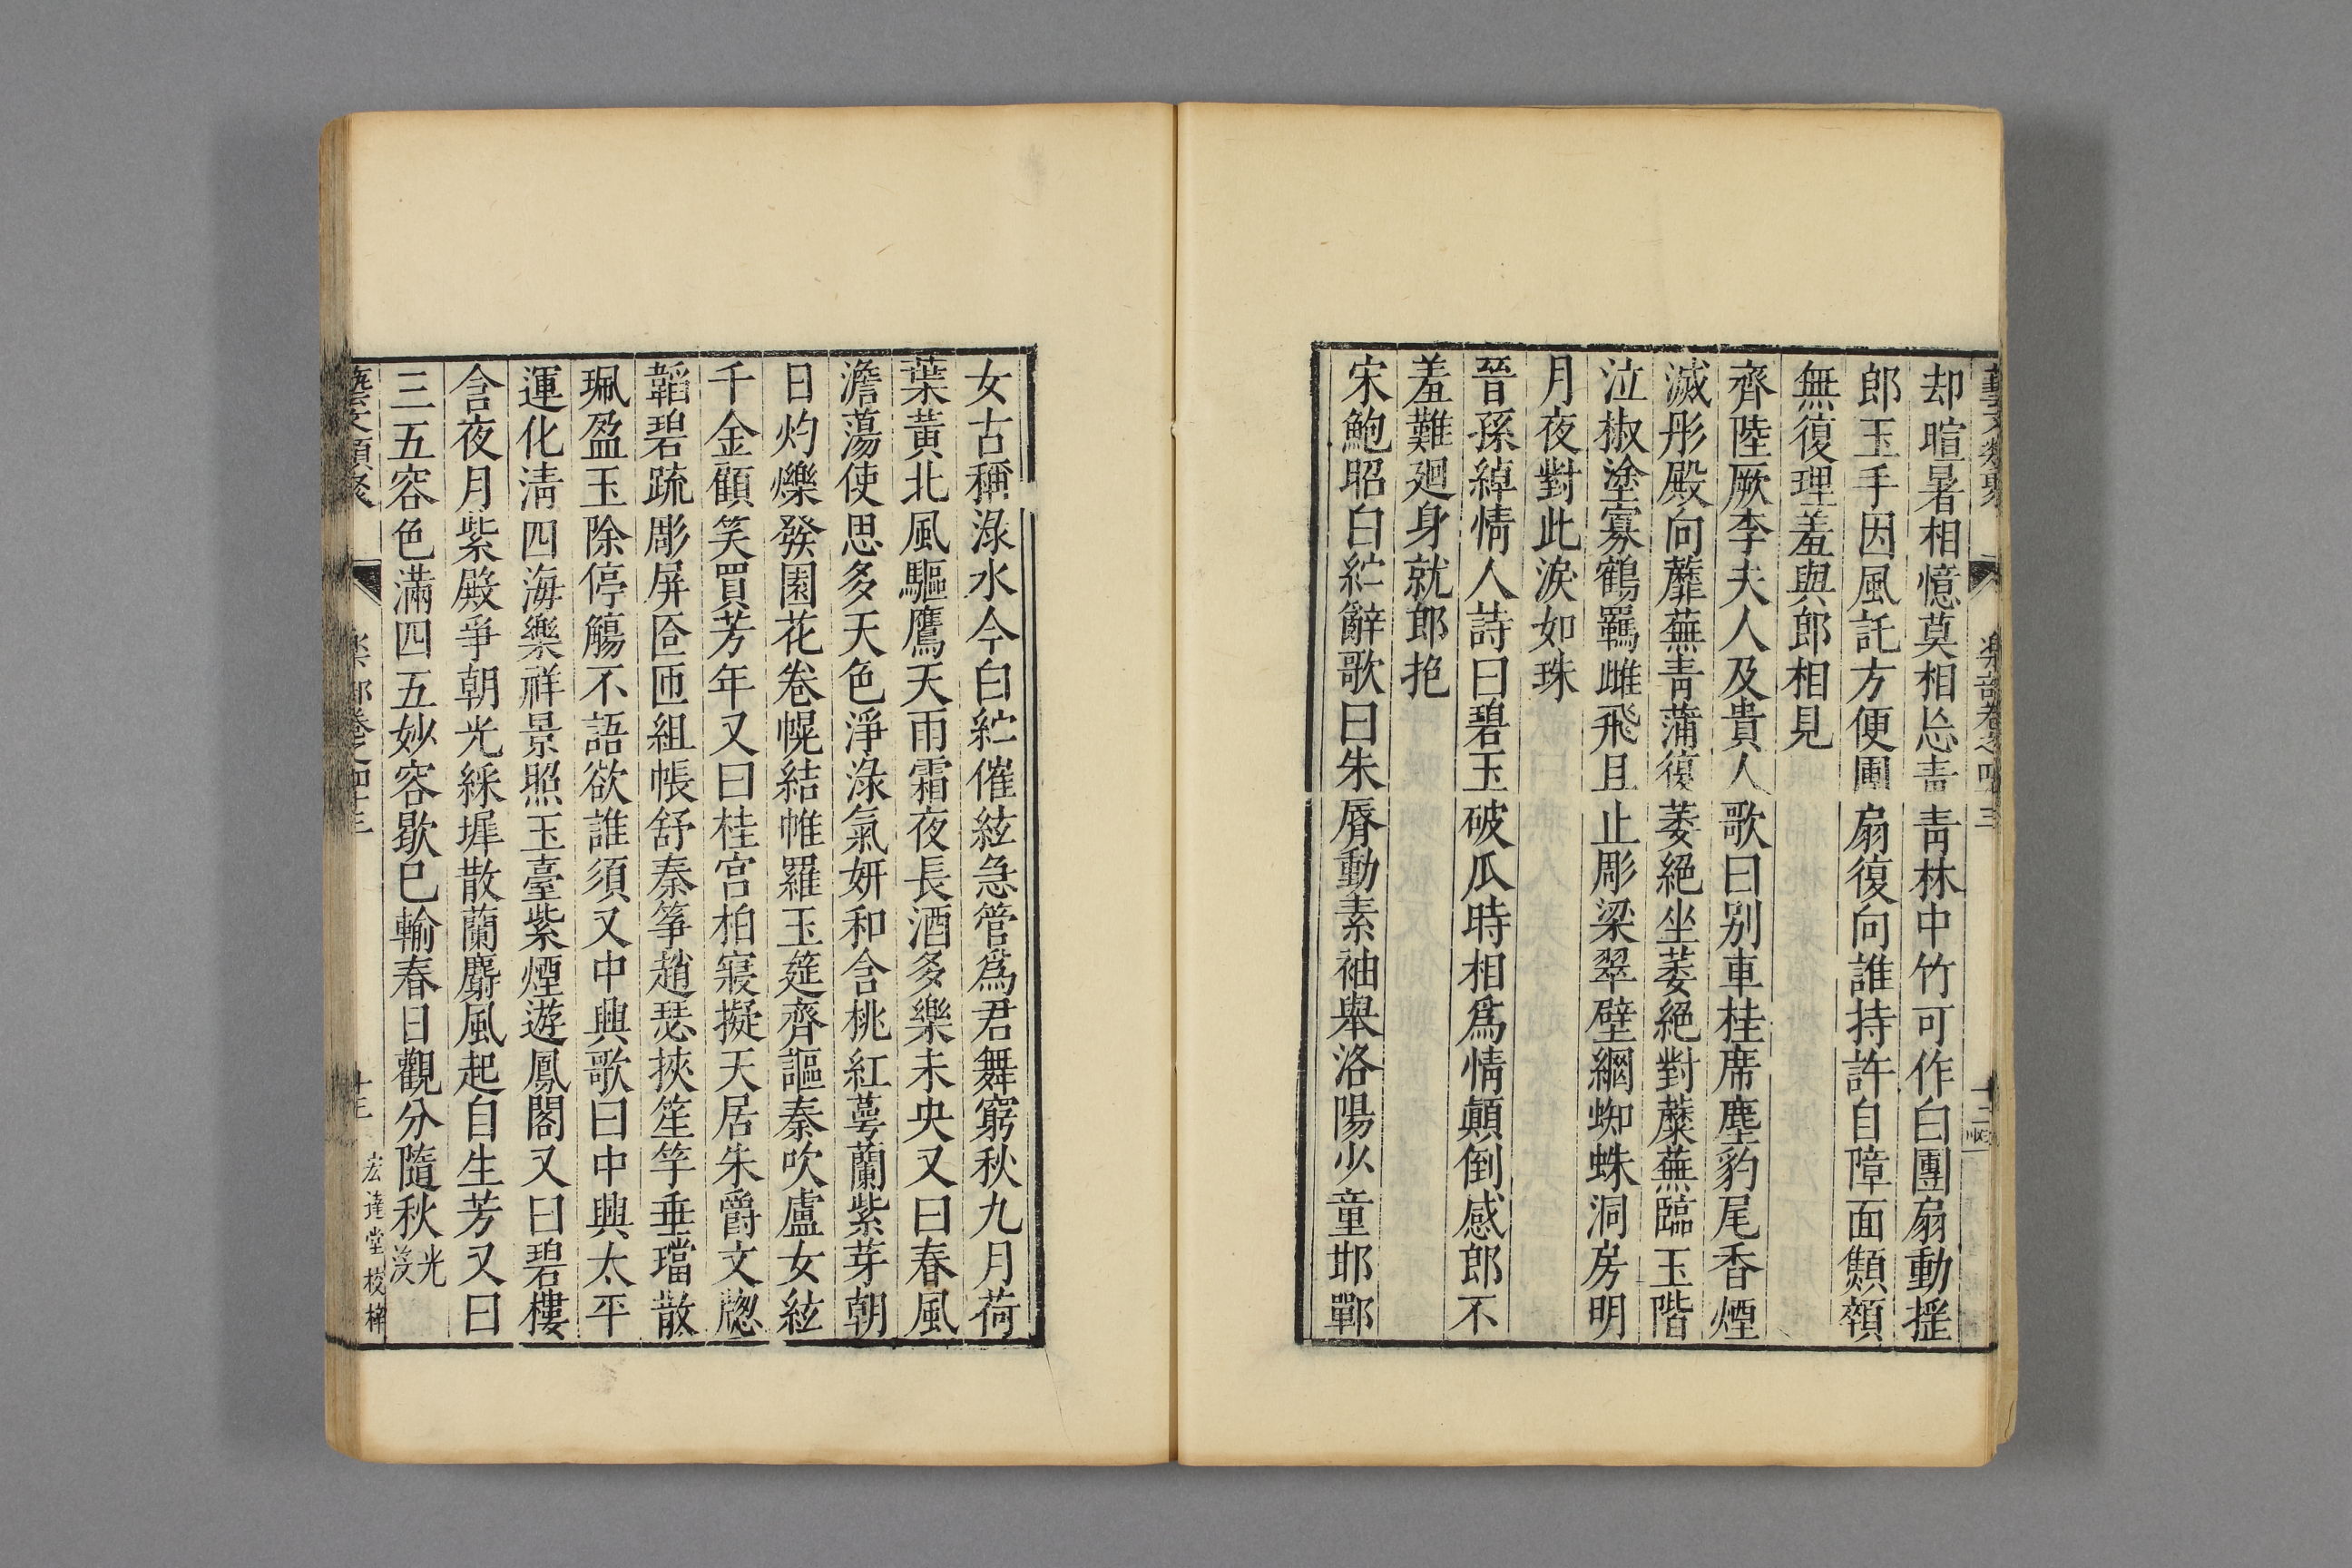 藝文類聚　樂部卷之四十三　十二
却暄暑相憶莫相忘青青林中竹可作白團扇動揺
郎玉手因風託方便團扇復向誰持許自障面顦顇
無復理羞與郎相見
齊陸厥李夫人及貴人歌曰別車桂席塵豹尾香煙
滅彤殿向蘼蕪青蒲復萎絕坐萎絕對蘪蕪臨玉階
泣椒塗寡鶴羈雌飛且止彫梁翠壁網蜘蛛洞房明
月夜對此淚如珠
晉孫綽情人詩曰碧玉破瓜時相爲情顛倒感郎不
羞難廻身就郎抱
宋鮑昭白紵辭歌曰朱脣動素袖舉洛陽少童邯鄲
女古稱淥水今白紵催絃急管爲君舞窮秋九月荷
葉黃北風驅鷹天雨霜夜長酒多樂未央又曰春風
澹蕩使思多天色淨淥氣妍和含桃紅萼蘭紫芽朝
日灼爍發園花卷幌結帷羅玉筵齊謳秦吹盧女絃
千金顧笑買芳年又曰桂宮柏寢擬天居朱爵文牕
韜碧疏彫屏匼匝組帳舒秦箏趙瑟挾笙竽垂璫散
珮盈玉除停觴不語欲誰須又中興歌曰中興太平
運化淸四海樂祥景照玉臺紫煙遊鳳閣又曰碧樓
含夜月紫殿爭朝光綵墀散蘭麝風起自生芳又曰
三五容色滿四五妙容歇巳輸春日觀分隨秋光沒
藝文類聚　樂部卷之四十三　十三　宏達堂校梓